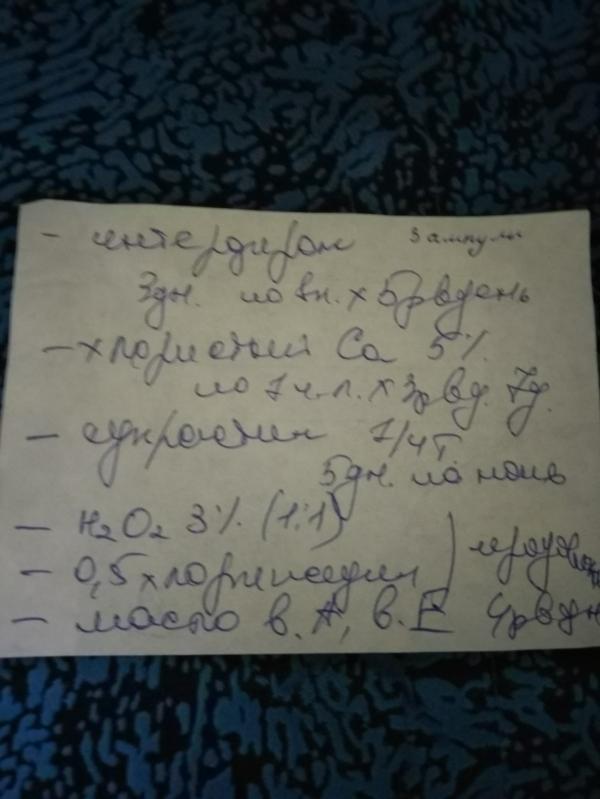 - интерферон 3 ампулы
3дн. по 1к. х 5р в день
- хлористый Ca 5%
по 1 ч.л. х 3р в д. 7д.
- супрастин 1/4 т
5 дн. на ночь
- H₂O₂ 3% (1:1)
- 0,5 хлоргексидин
- масло в. А, в. Е 4р в дн